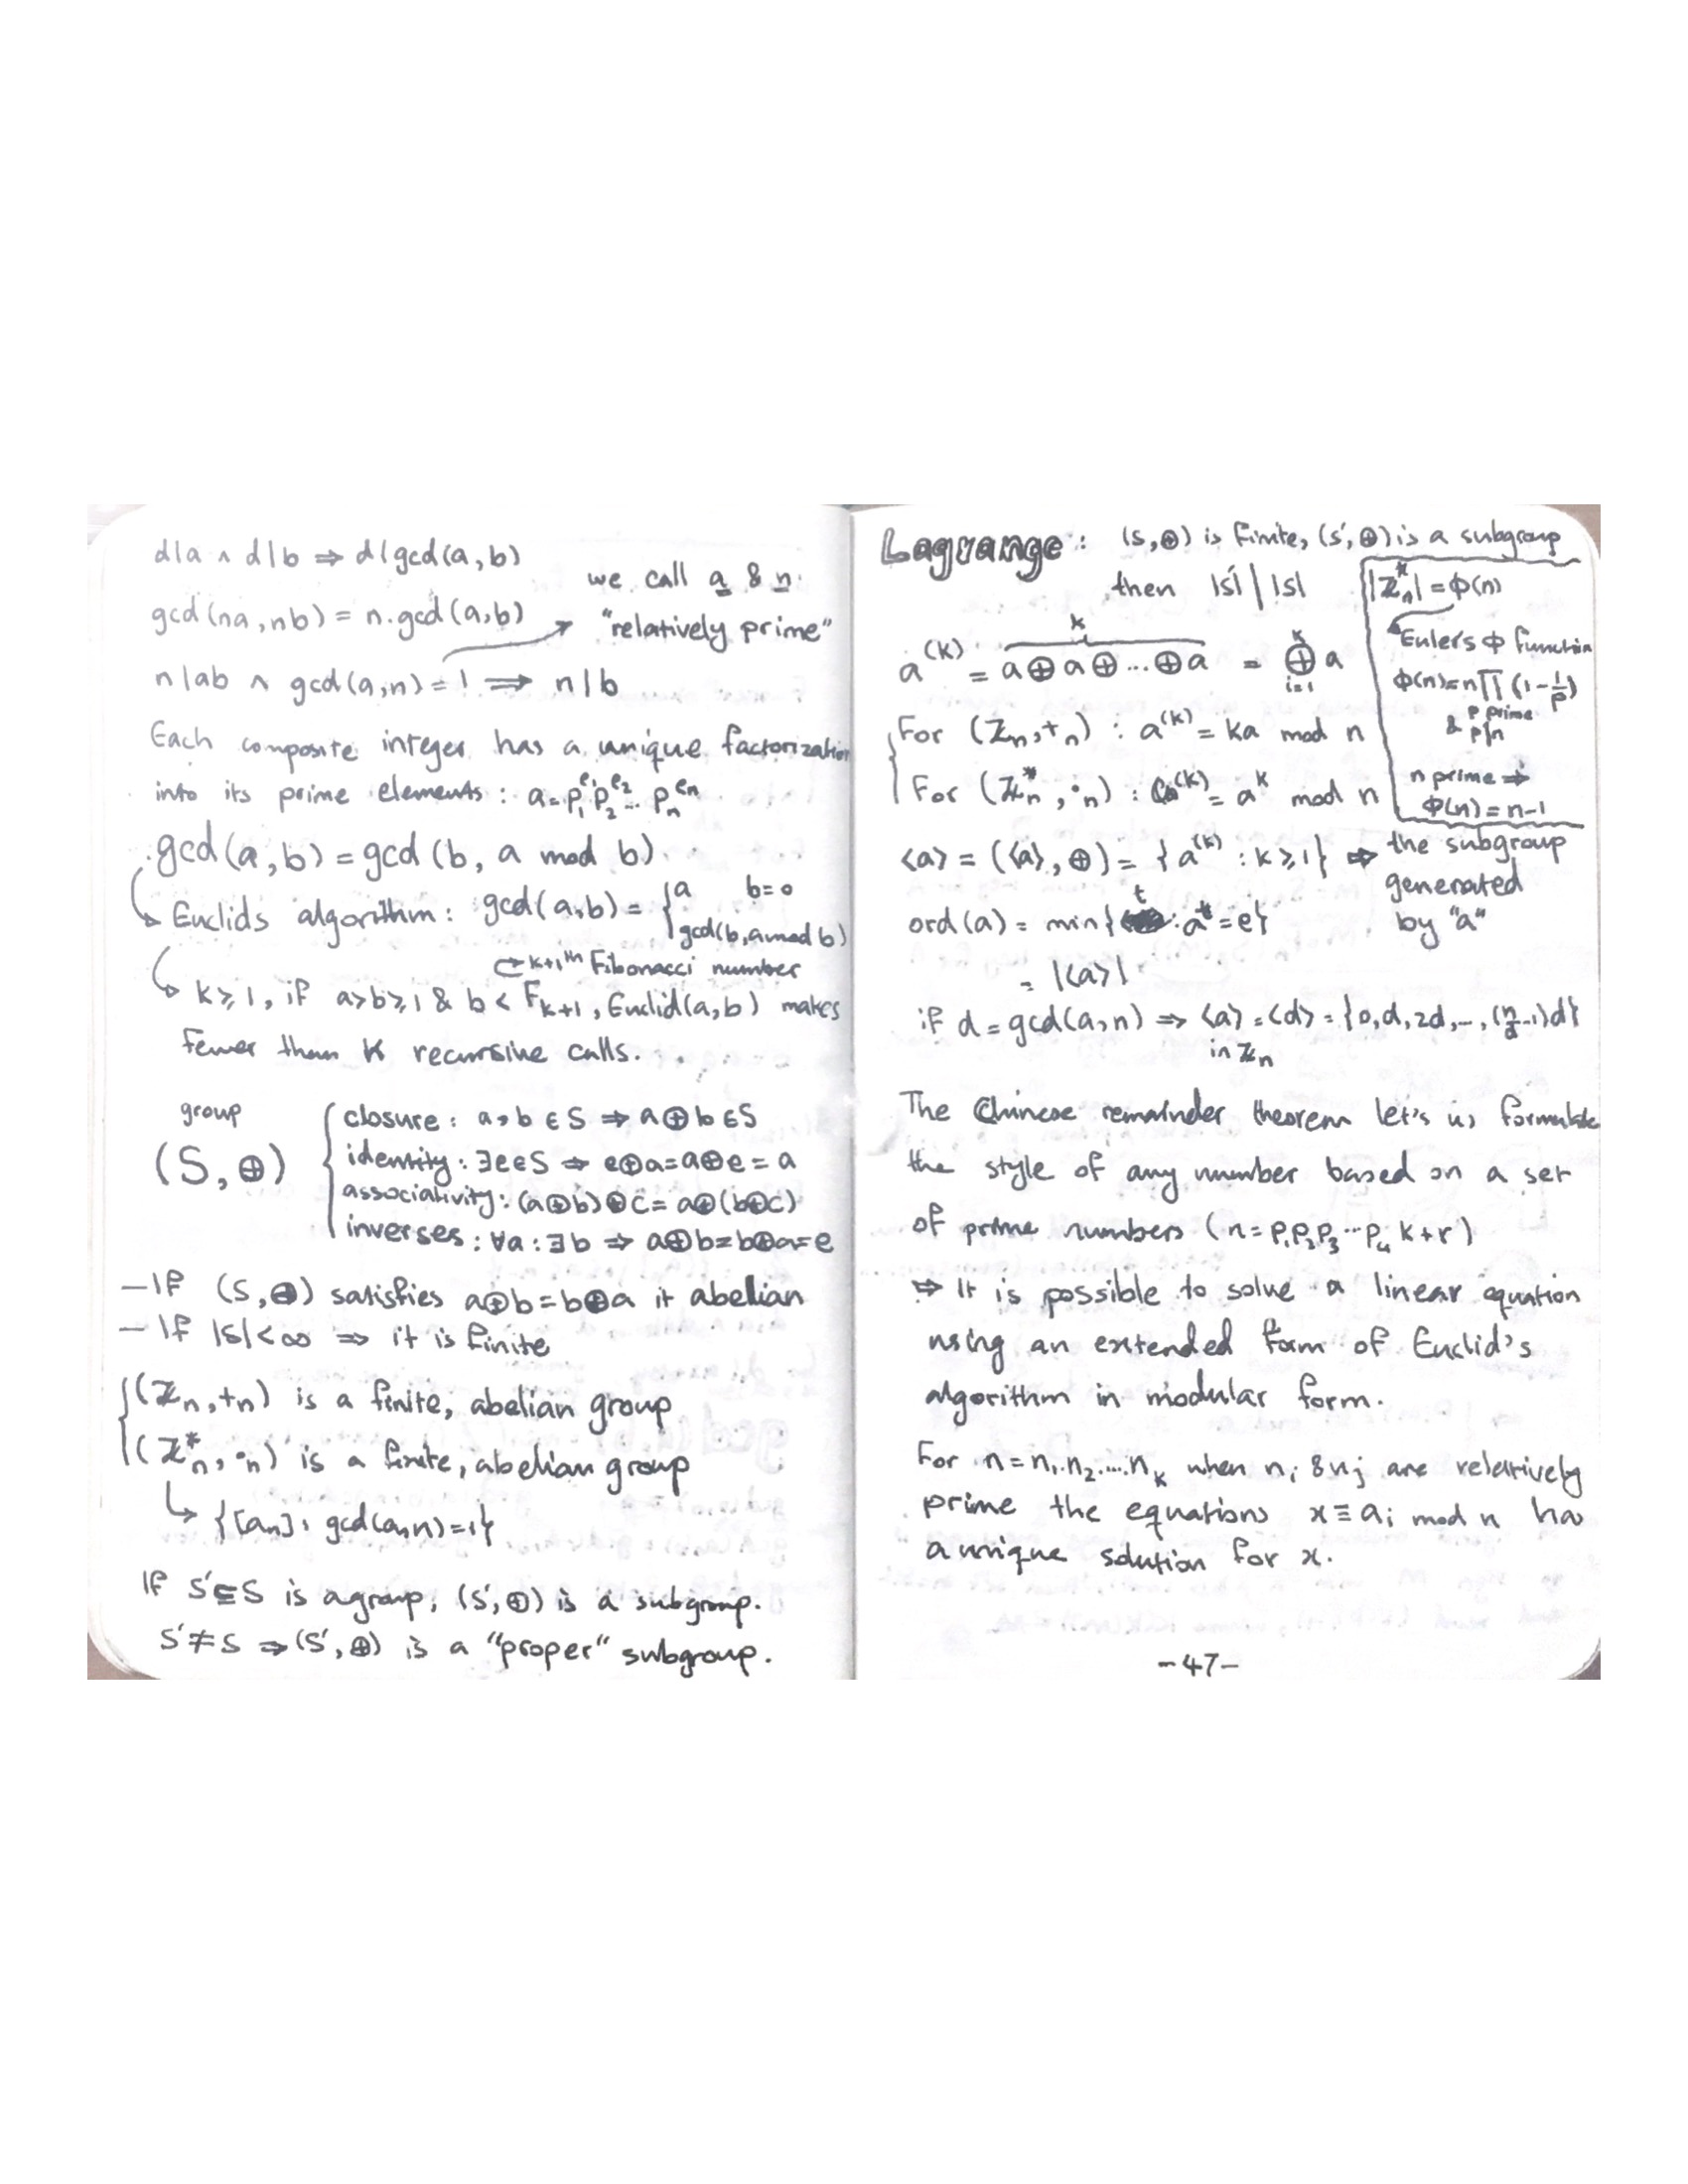 d|a ∧ d|b ⇒ d|gcd(a,b)
we call a & n
gcd(na,nb) = n.gcd(a,b)
"relatively prime"
n|ab ∧ gcd(a,n)=1 ⟹ n|b
Each composite integer has a unique factorization
into its prime elements : a=p₁^e₁ p₂^e₂ ... pₙ^eₙ
gcd(a,b) = gcd(b, a mod b)
Euclids algorithm: gcd(a,b) = { a b=0
gcd(b, a mod b)
k+1th Fibonacci number
k⩾1, if a>b⩾1 & b < F_{k+1}, Euclid(a,b) makes
fewer than K recursive calls.
group
(S,⊕)
closure : a,b ∈ S ⇒ a⊕b ∈ S
identity : ∃e∈S ⇒ e⊕a=a⊕e= a
associativity : (a⊕b)⊕c= a⊕(b⊕c)
inverses : ∀a : ∃b ⇒ a⊕b=b⊕a=e
— If (S,⊕) satisfies a⊕b=b⊕a it abelian
— If |S|<∞ ⇒ it is finite
(ℤₙ,+ₙ) is a finite, abelian group
(ℤ*ₙ,·ₙ) is a finite, abelian group
{[aₙ], gcd(a,n)=1}
If S'⊆S is a group, (S',⊕) is a subgroup.
S'≠S ⇒ (S',⊕) is a "proper" subgroup.
Lagrange : (S,⊕) is finite, (S',⊕) is a subgroup
then |S'| | |S|
|ℤ*ₙ| = ϕ(n)
Eulers ϕ function
ϕ(n)=n∏(1-1/p)
p prime
& p|n
n prime ⇒
ϕ(n)=n-1
k
a^(k) = a⊕a⊕...⊕a = ⊕_{i=1}^{k} a
For (ℤₙ,+ₙ) : a^(k) = ka mod n
For (ℤ*ₙ,·ₙ) : a^(k) = a^k mod n
⟨a⟩ = (⟨a⟩,⊕) = {a^(k) : k⩾1} ⇒ the subgroup
generated
by "a"
ord(a) = min{t : a^t = e}
= |⟨a⟩|
if d = gcd(a,n) ⇒ ⟨a⟩=⟨d⟩={0,d,2d,...,(n/d-1)d}
in ℤₙ
The Chinese remainder theorem let's us formulate
the style of any number based on a set
of prime numbers (n=p₁p₂p₃...p₄ k+r)
⇒ It is possible to solve a linear equation
using an extended form of Euclid's
algorithm in modular form.
For n=n₁.n₂.....n_k when n_i & n_j are relatively
prime the equations x≡a_i mod n has
a unique solution for x.
-47-